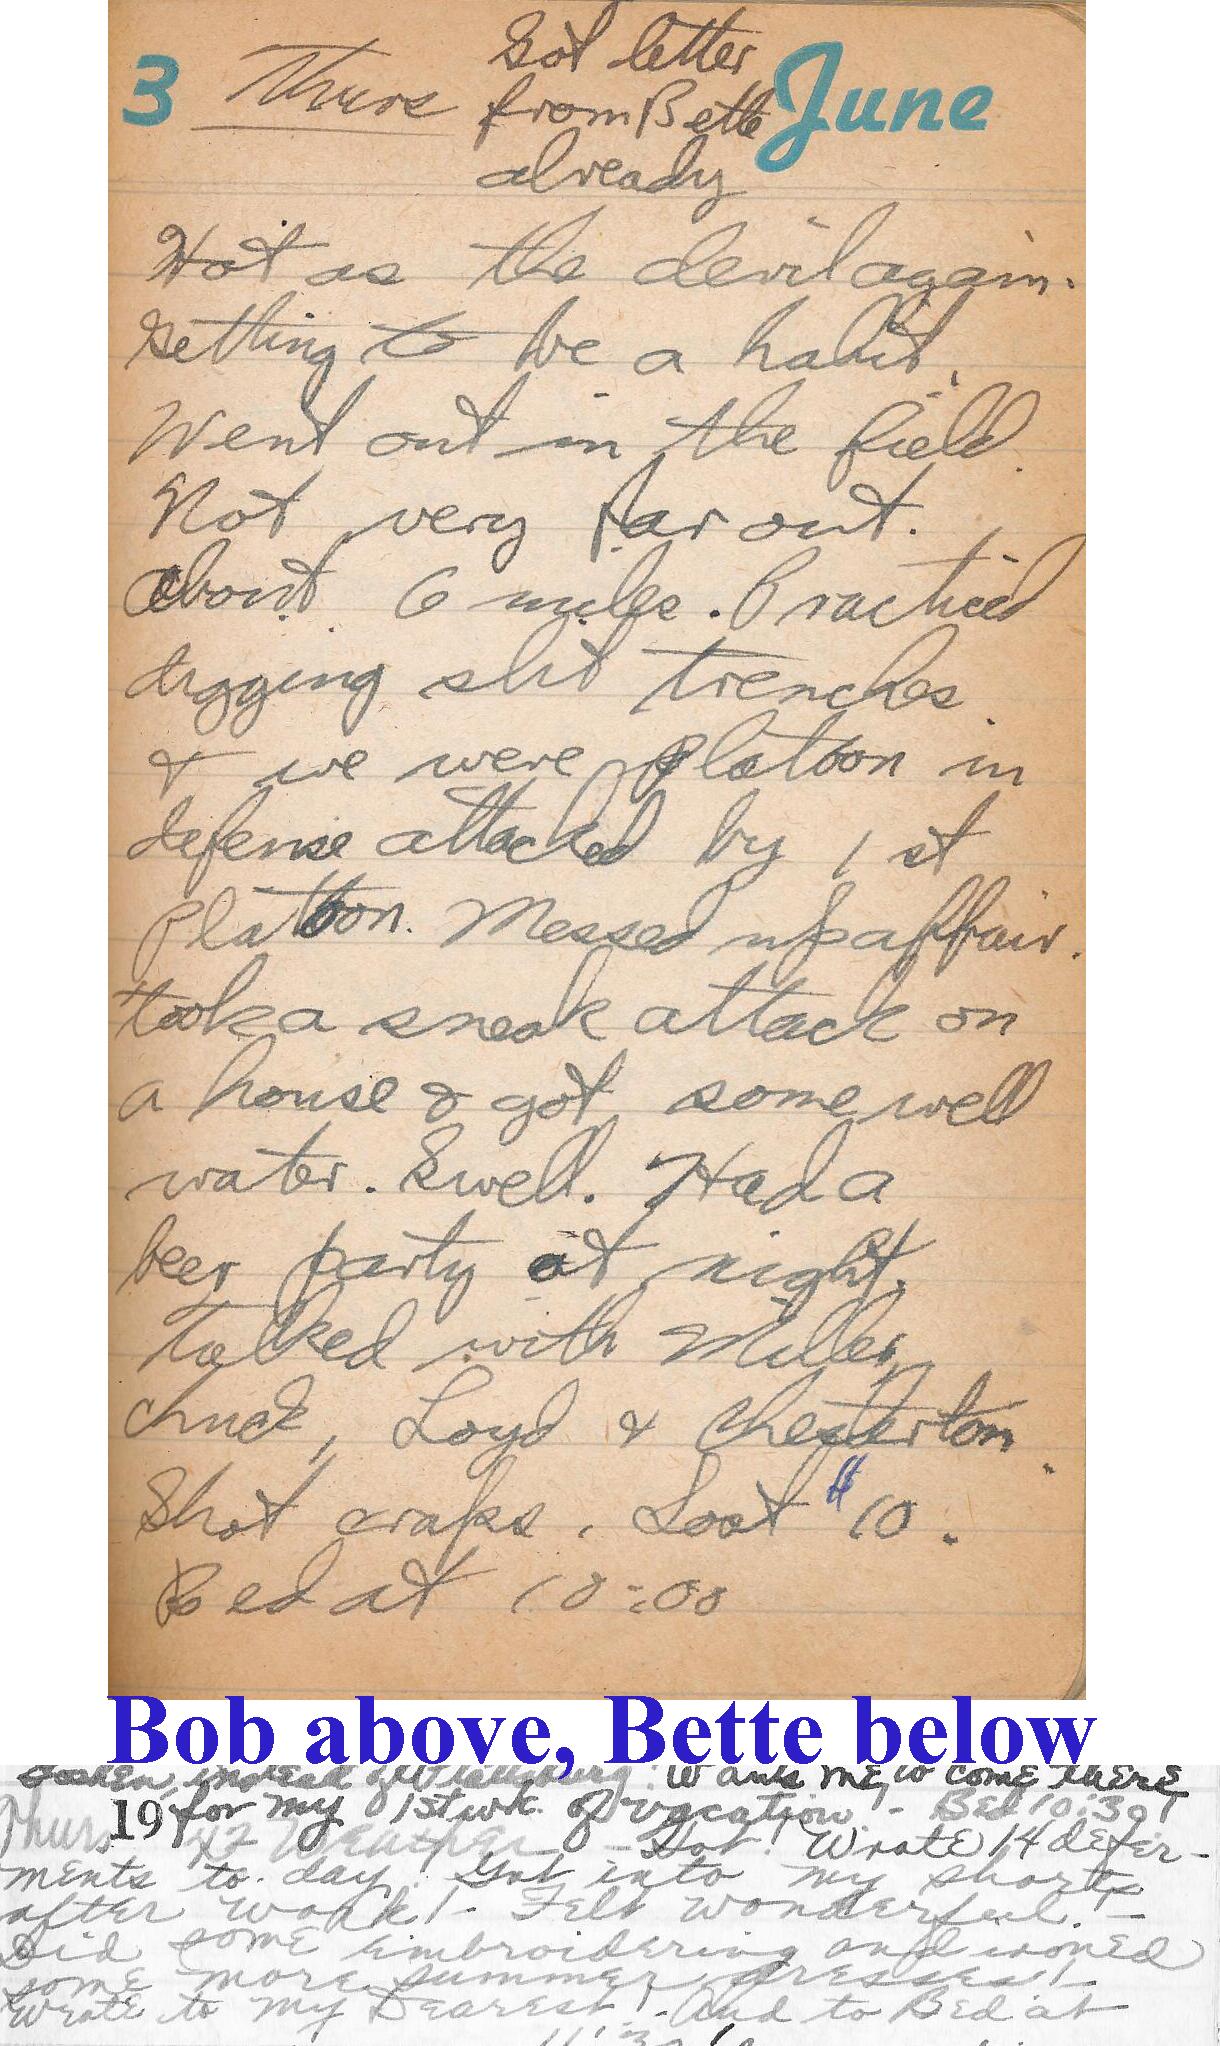 3 Thurs Got letter June
from Bette
already
Hot as the devil again.
Getting to be a habit.
Went out in the field.
Not very far out.
About 6 miles. Practiced
digging slit trenches
& we were platoon in
defense attacked by 1st
Platoon. Messed up affair.
took a sneak attack on
a house & got some well
water. Swell. Had a
beer party at night.
Talked with Miller,
Chuck, Loyd & Chesterton.
Shot craps. Lost $10.
Bed at 10:00
Bob above, Bette below
Goshen, instead of Wants me to come there
19 for my 1st wk. of vacation. - Bed 10:30!
Thurs Weather - Hot! Wrote 14 defer-
ments to-day! Got into my shorts
after work! - Felt wonderful. -
Did some embroidering and ironed
some more summer dresses! -
Wrote to my Dearest! - And to Bed at
11:30!